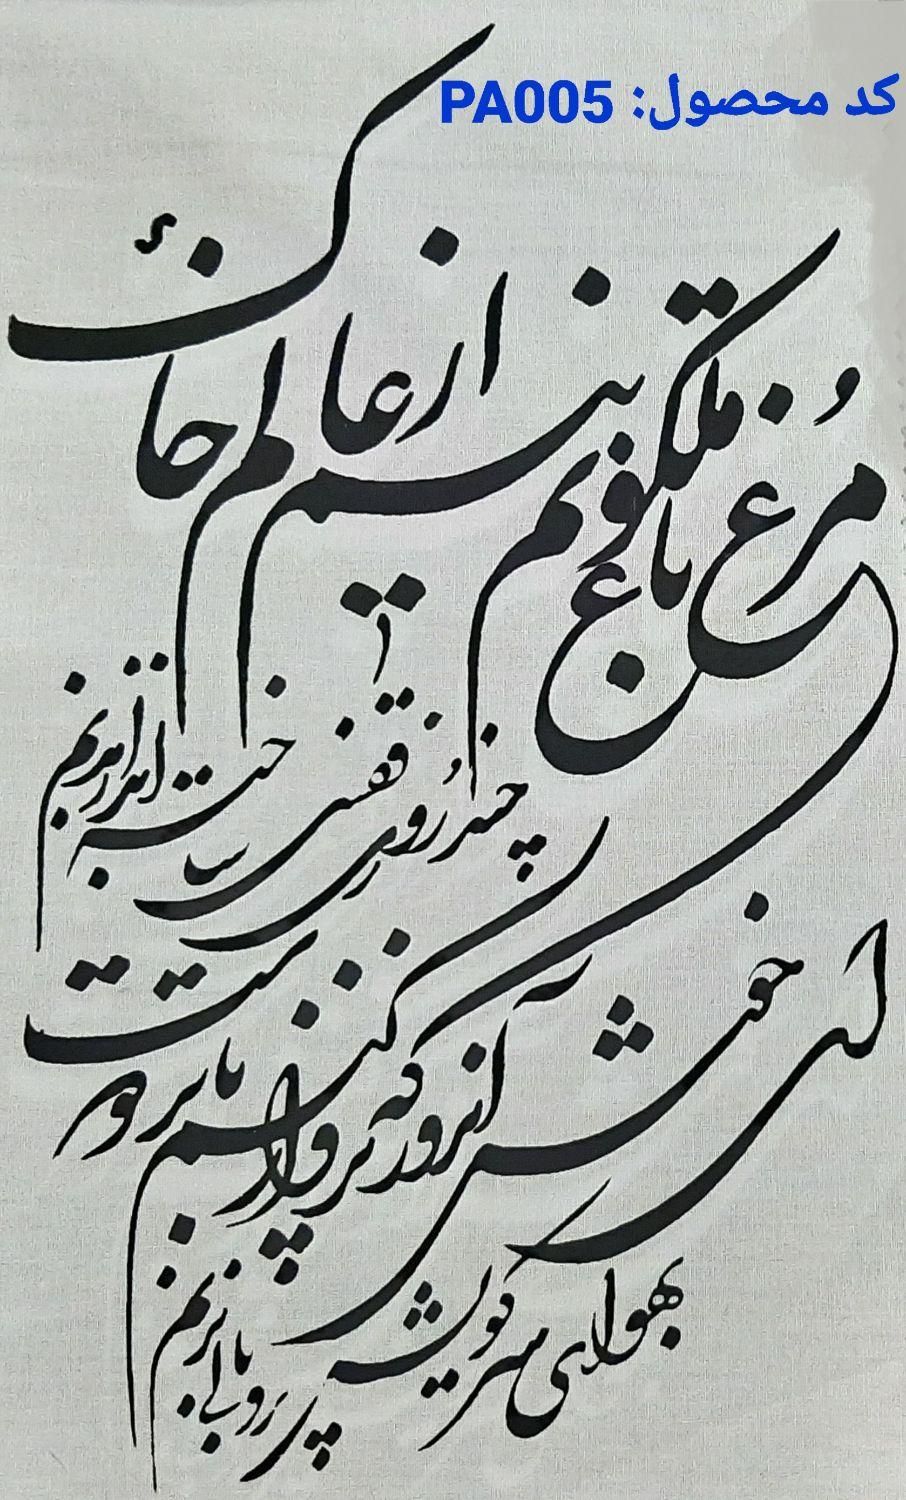 کد محصول: PA005
مُرغ باغ ملکوتم نیم از عالم خاک
چند رُوزی قفسی ساخته‌اند از بدنم
ای خوش آنروز که پرواز کنم تا بر دوست
بهوای سر کویش پر و بالی بزنم